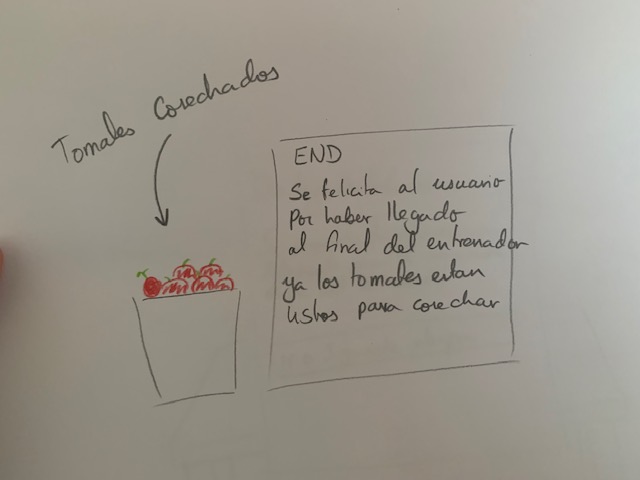 Tomates Cosechados
END
Se felicita al usuario
por haber llegado
al final del entrenador
ya los tomates estan
listos para cosechar